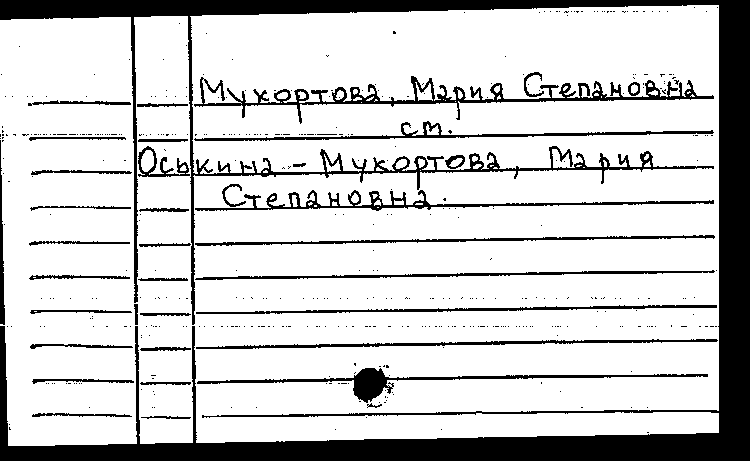 Мухортова, Мария Степановна
ст.
Оськина - Мухортова, Мария
Степановна.